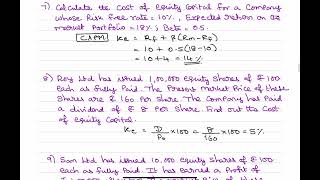 7) Calculate the Cost of Equity Capital for a Company
whose Risk free rate = 10% , Expected Return on the
market Portfolio = 18% ; Beta = 0.5.
C.A.P.M. Ke = Rf + β (Rm - Rf)
= 10 + 0.5 (18-10)
= 10 + 4 = 14%
8) Roy Ltd has issued 1,00,000 Equity Shares of ₹ 100
each as fully Paid. The Present market Price of these
Shares are ₹ 160 Per Share. The Company has Paid
a dividend of ₹ 8 Per Share. Find out the Cost
of Equity Capital.
Ke = D/P0 × 100 = 8/160 × 100 = 5%
9) Ltd has issued 10,000 Equity Shares of ₹ 100
each as fully Paid. It has earned a Profit of